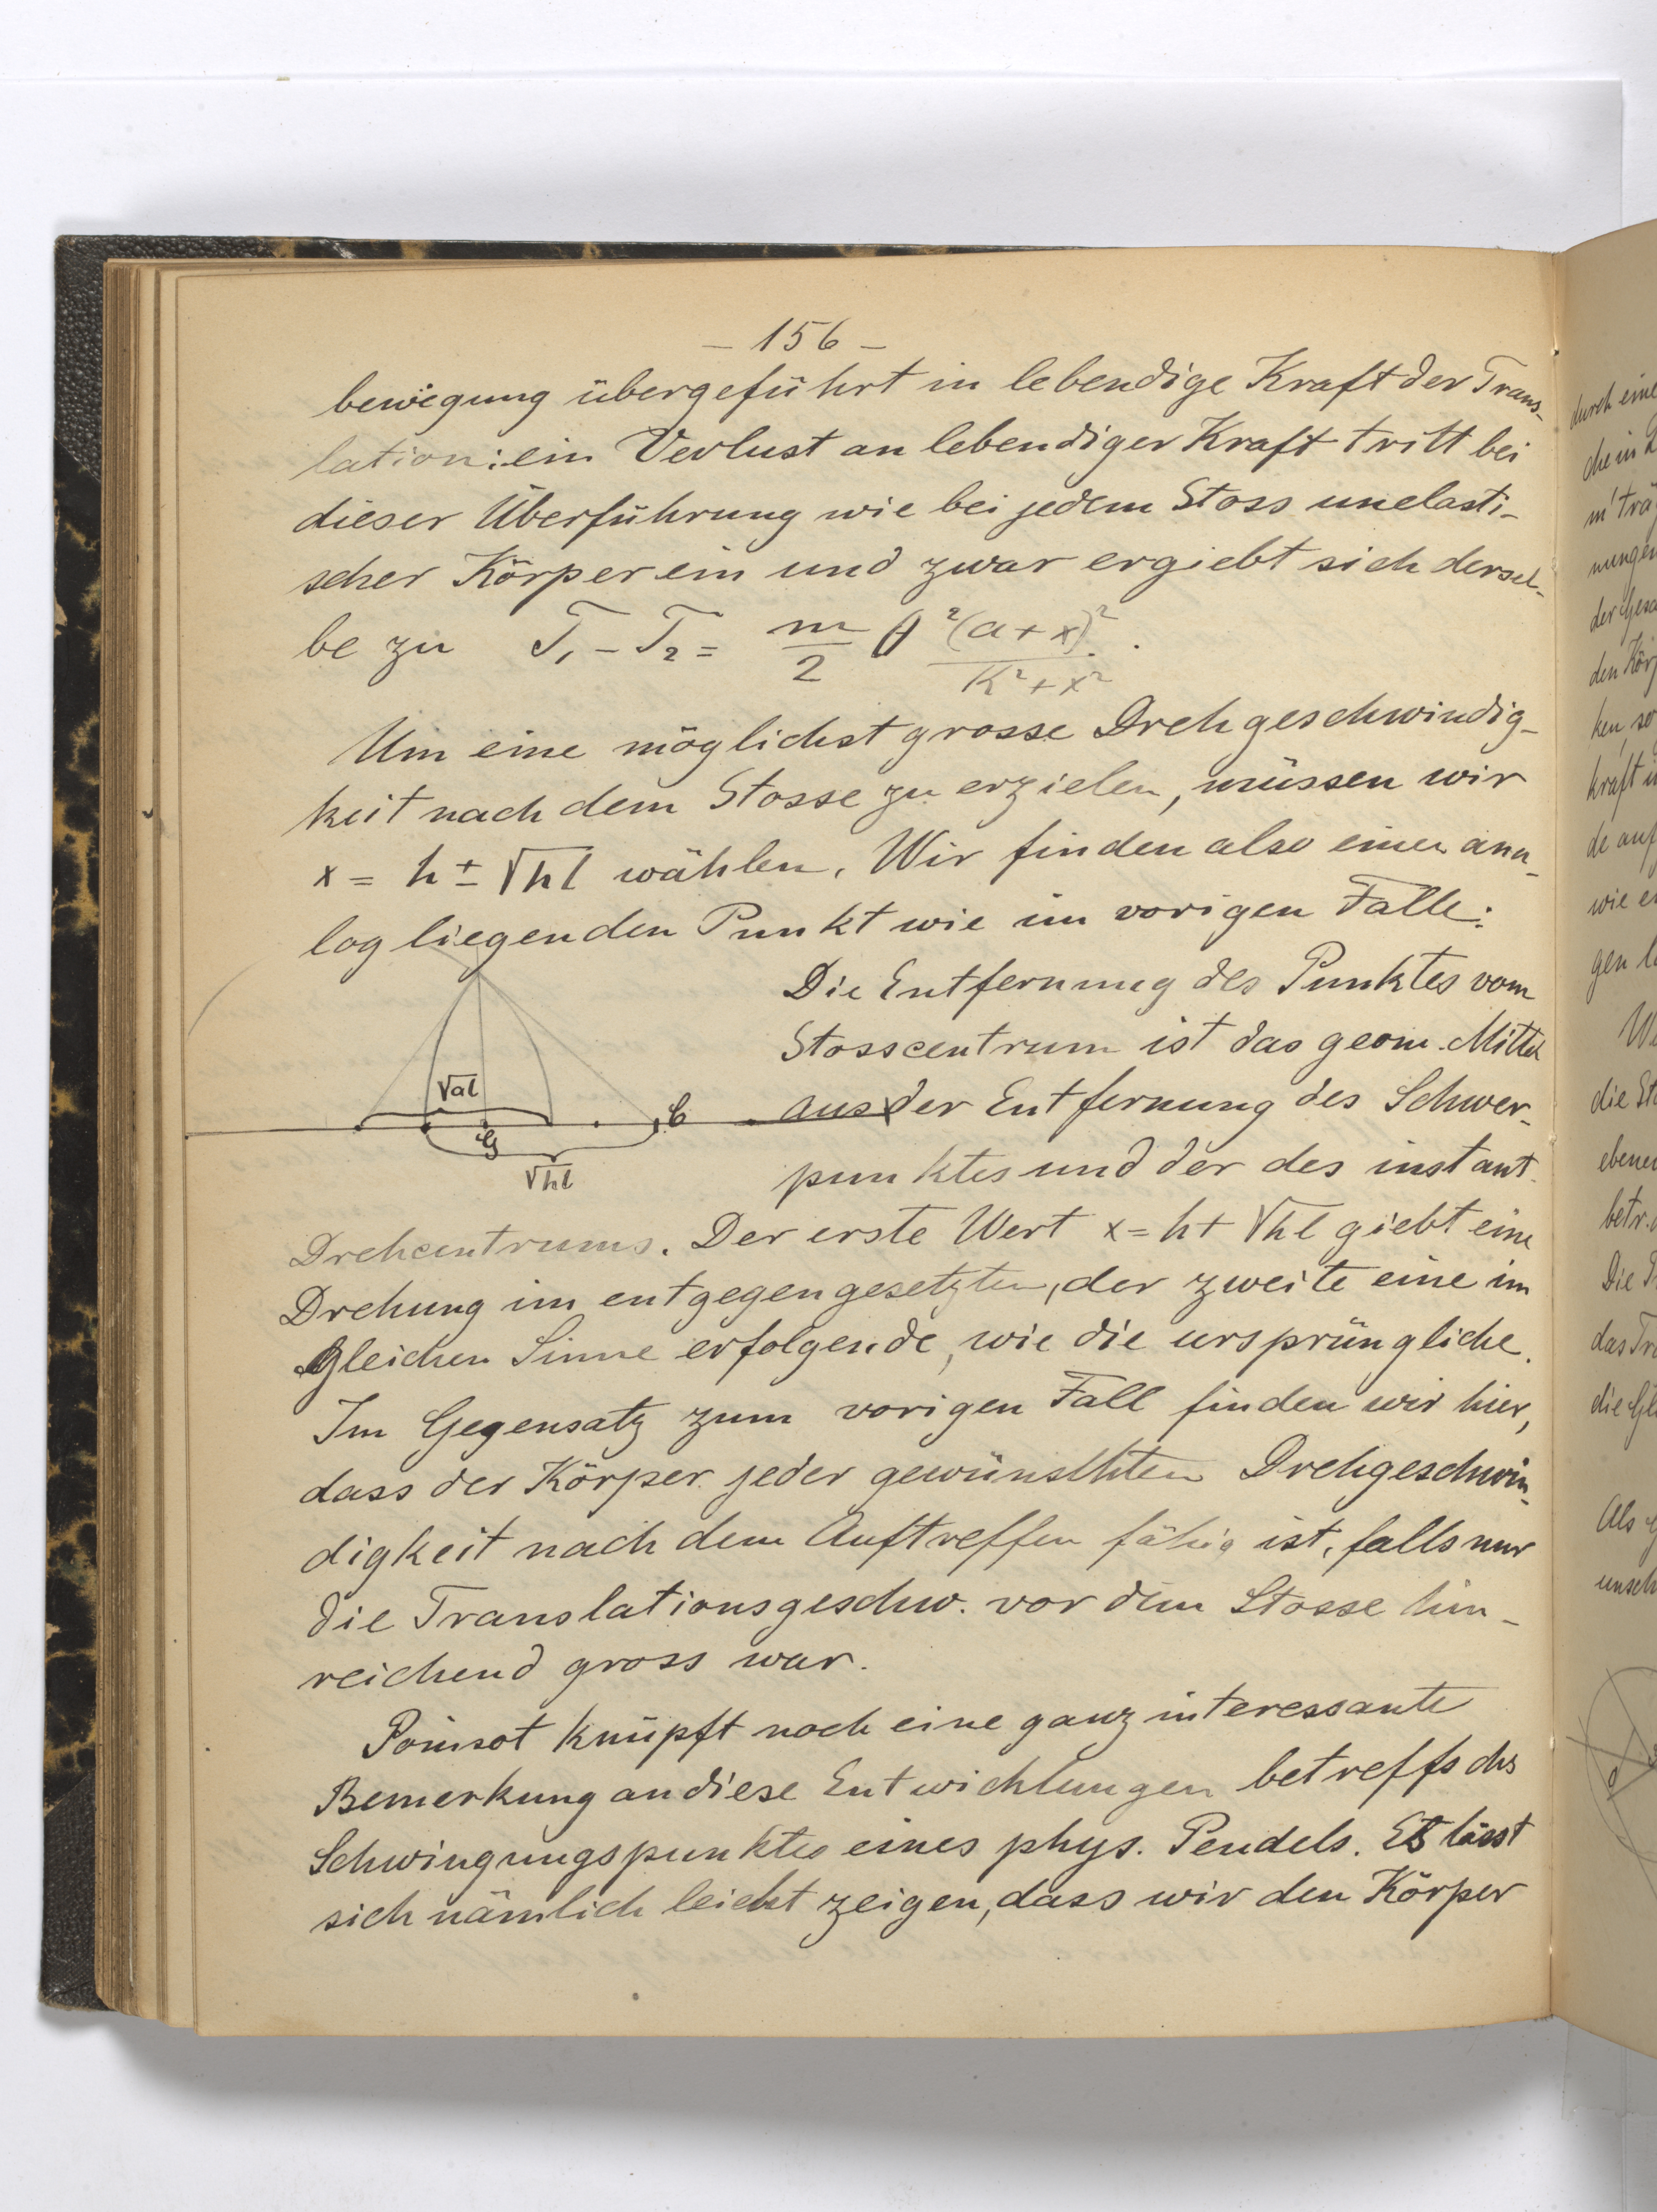 – 156 –
bewegung übergeführt in lebendige Kraft der Trans-
lation: ein Verlust an lebendiger Kraft tritt bei
dieser Überführung wie bei jedem Stoss unelasti-
scher Körper ein und zwar ergiebt sich dersel-
be zu T₁ – T₂ = m/2 θ² (a + x)²/K² + x² .
Um eine möglichst grosse Drehgeschwindig-
keit nach dem Stosse zu erzielen, müssen wir
x = h ± √hl wählen. Wir finden also einen ana-
log liegenden Punkt wie im vorigen Falle:
Die Entfernung des Punktes vom
Stosscentrum ist das geom. Mittel
aus der Entfernung des Schwer-
punktes und der des instant.
√al
G
C
√hl
Drehcentrums. Der erste Wert x = h + √hl giebt eine
Drehung im entgegengesetzten, der zweite eine im
gleichen Sinne erfolgende, wie die ursprüngliche.
Im Gegensatz zum vorigen Fall finden wir hier,
dass der Körper jeder gewünschten Drehgeschwin-
digkeit nach dem Auftreffen fähig ist, falls nur
die Translationsgeschw. vor dem Stosse hin-
reichend gross war.
Poinsot knüpft noch eine ganz interessante
Bemerkung an diese Entwicklungen betreffs des
Schwingungspunktes eines phys. Pendels. Es lässt
sich nämlich leicht zeigen, dass wir den Körper
durch eine
die in
nungen
den Kör
ken, so
kraft
de auf
wie
gen
die
ebene
betr.
Die
das Tr
die Gl
Als